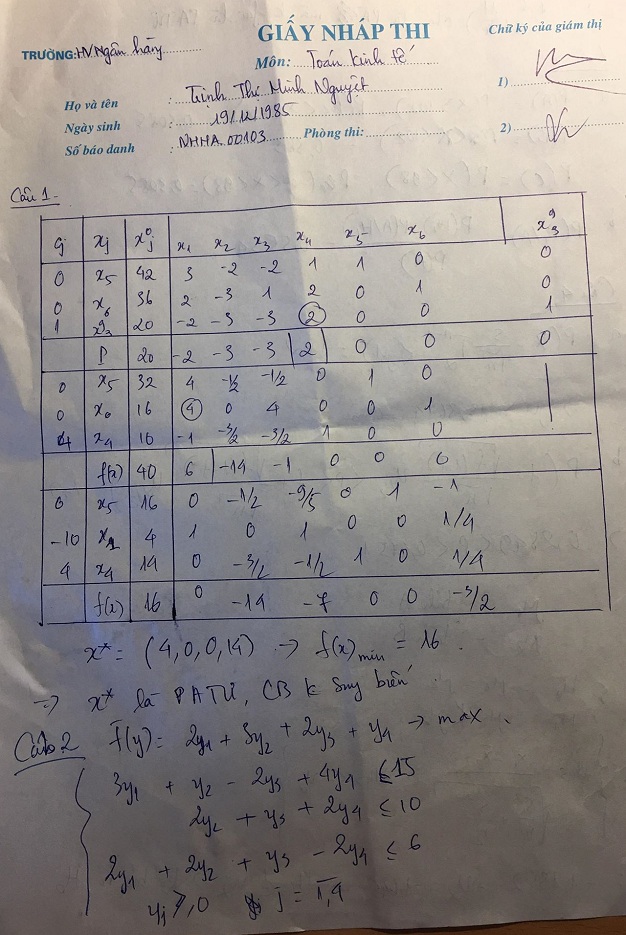 GIẤY NHÁP THI
Chữ ký của giám thị
TRƯỜNG: HV Ngân hàng
Môn: Toán kinh tế
1)
Họ và tên : Trịnh Thị Minh Nguyệt
Ngày sinh : 19/12/1985
2)
Số báo danh : NHHA.00103 Phòng thi:
Câu 1-
Cj xj x⁰j x1 x2 x3 x4 x5 x6 x9g
0 x5 42 3 -2 -2 1 1 0 0
0 x6 36 2 -3 1 2 0 1 0
1 x9g 20 -2 -3 -3 2 0 0 1
P 20 -2 -3 -3 2 0 0 0
0 x5 32 4 -1/2 -1/2 0 1 0
0 x6 16 4 0 4 0 0 1
4 x4 10 -1 -3/2 -3/2 1 0 0
f(x) 40 6 -14 -1 0 0 0
0 x5 16 0 -1/2 -9/5 0 1 -1
-10 x1 4 1 0 1 0 0 1/4
4 x4 14 0 -3/2 -1/2 1 0 1/4
f(x) 16 0 -14 -7 0 0 -3/2
x* = (4,0,0,14) → f(x)min = 16.
⇒ x* là PATƯ, CB k suy biến.
Câu 2 f̄(y) = 2y1 + 3y2 + 2y3 + y4 → max.
3y1 + y2 - 2y3 + 4y4 ≤ 15
2y2 + y3 + 2y4 ≤ 10
2y1 + 2y2 + y3 - 2y4 ≤ 6
yj ≥ 0 j = 1,4